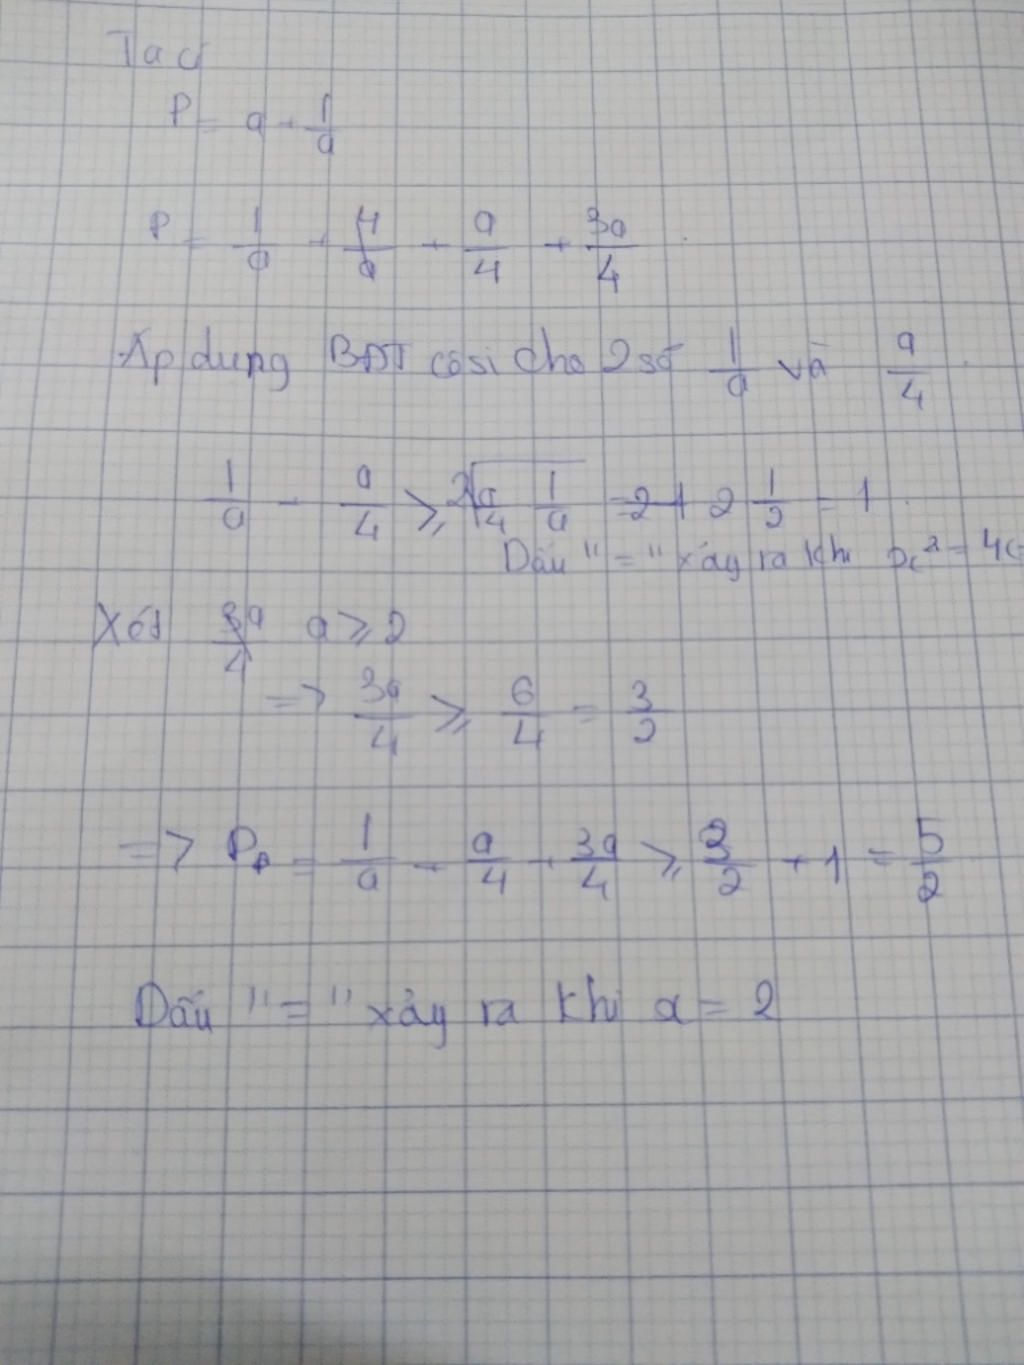 Ta có
P = a + 1/a
P = 1/a + 4/a + a/4 + 3a/4
Áp dụng BĐT côsi cho 2 số 1/a và a/4
1/a + a/4 ≥ 2√(a/4 1/a) = 2 1/2 = 1
Dấu "=" xảy ra khi
Xét 3a/4 a ≥ 2
=> 3a/4 ≥ 6/4 = 3/2
=> P = 1/a + a/4 + 3a/4 ≥ 3/2 + 1 = 5/2
Dấu "=" xảy ra khi a = 2